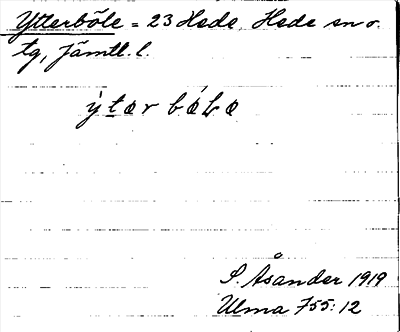 Ytterböle = 23 Hede, Hede sn o.
tg, Jämtl. l.
ỳtər bǿLə
S. Åsander 1919
Ulma 755:12